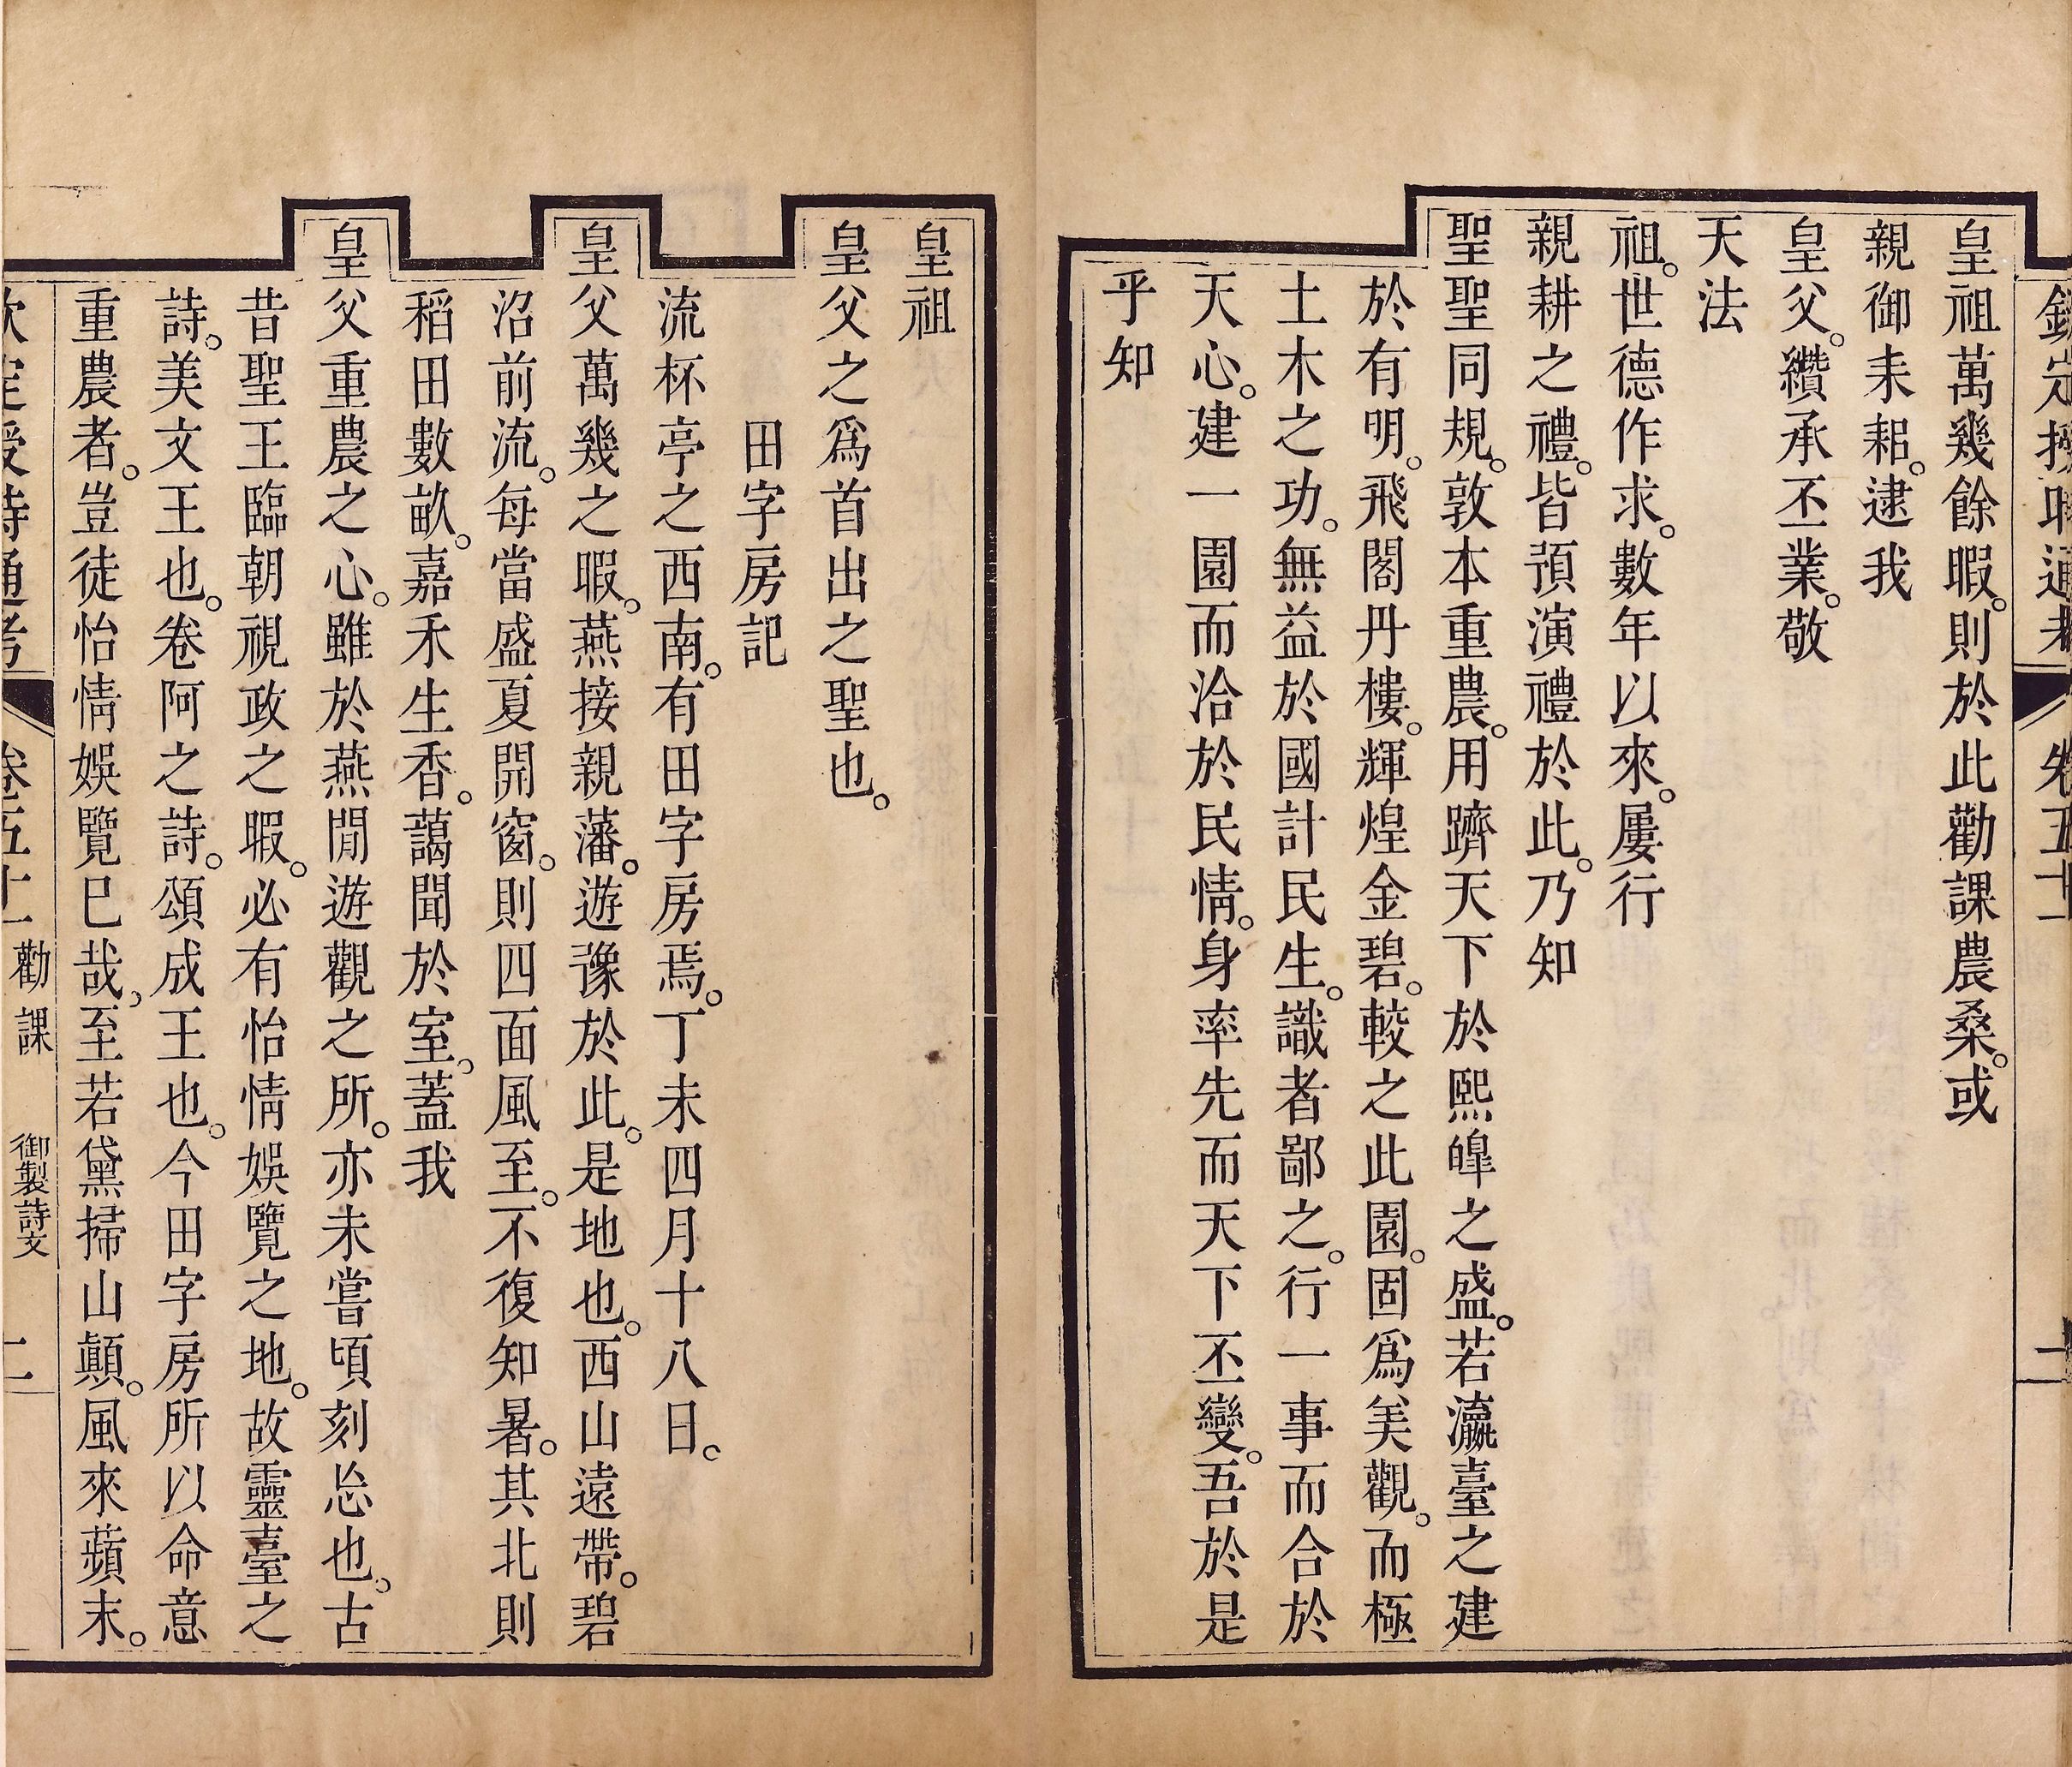 欽定授時通考 卷五十一 一
皇祖萬幾餘暇。則於此勸課農桑。或
親御耒耜。逮我
皇父。纘承丕業。敬
天法
祖。世德作求。數年以來。屢行
親耕之禮。皆預演禮於此。乃知
聖聖同規。敦本重農。用躋天下於熙皥之盛。若瀛臺之建
於有明。飛閣丹樓。輝煌金碧。較之此園。固爲美觀。而極
土木之功。無益於國計民生。識者鄙之。行一事而合於
天心。建一園而洽於民情。身率先而天下丕變。吾於是
乎知
皇祖
皇父之爲首出之聖也。
田字房記
流杯亭之西南。有田字房焉。丁未四月十八日。
皇父萬幾之暇。燕接親藩。遊豫於此。是地也。西山遠帶。碧
沼前流。每當盛夏開窗。則四面風至。不復知暑。其北則
稻田數畝。嘉禾生香。藹聞於室。蓋我
皇父重農之心。雖於燕閒遊觀之所。亦未嘗頃刻忘也。古
昔聖王臨朝視政之暇。必有怡情娛覽之地。故靈臺之
詩。美文王也。卷阿之詩。頌成王也。今田字房所以命意
重農者。豈徒怡情娛覽已哉。至若黛掃山顛。風來蘋末。
欽定授時通考 卷五十一 勸課 御製詩文 二